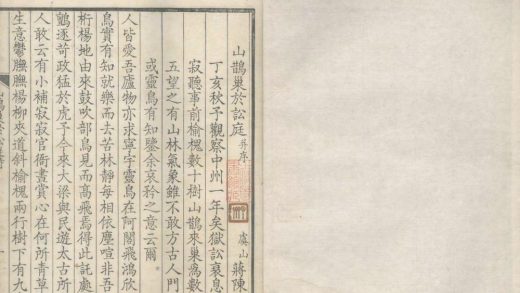 山鵲巢於訟庭 并序
虞山 蔣陳
丁亥秋予觀察中州一年矣獄訟衰息
寂聽事前榆槐數十樹山鵲來巢為數
五望之有山林氣象雖不敢方古人門
或靈鳥有知鑒余哀矜之意云爾
人皆愛吾廬物亦求寧宇靈鳥在阿閣飛鴻欣
鳥實有知就樂而去苦林靜每相依塵喧非吾
鸇逐苛政猛於虎予今來大梁與民遊太古所
桁楊地由來鼓吹部鳥見而高飛焉得此託處
人敢云有小補寂寂官衙晝賞心在何所青草
生意鬱膴膴楊柳夾道斜榆槐兩行樹下有九